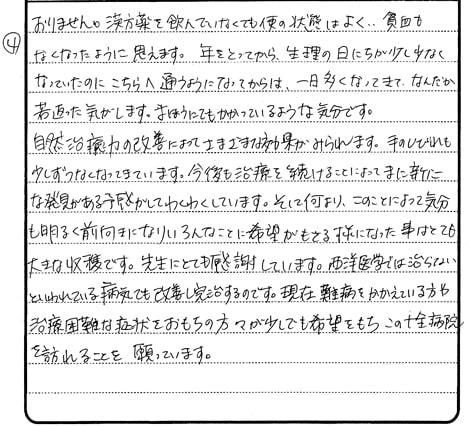 ④
おりません。漢方薬を飲んでいなくても便の状態はよく、貧血も
なくなったように思えます。年をとってから、生理の日にちが少し少なく
なっていたのにこちらへ通うようになってからは、一日多くなってきて、なんだか
若返った気がします。まほうにでもかかっているような気分です。
自然治療力の改善によってさまざまな効果がみられます。手のしびれも
少しずつなくなってきています。今後も治療を続けることによってまた新た
な発見がある予感がしてわくわくしています。そして何より、このことによって気分
も明るく前向きになりいろんなことに希望がもてる様になった事はとても
大きな収穫です。先生にとても感謝しています。西洋医学では治らない
といわれている病気でも改善し完治するのです。現在難病をかかえている方や
治療困難な症状をおもちの方々が少しでも希望をもち この十全病院
を訪れることを願っています。